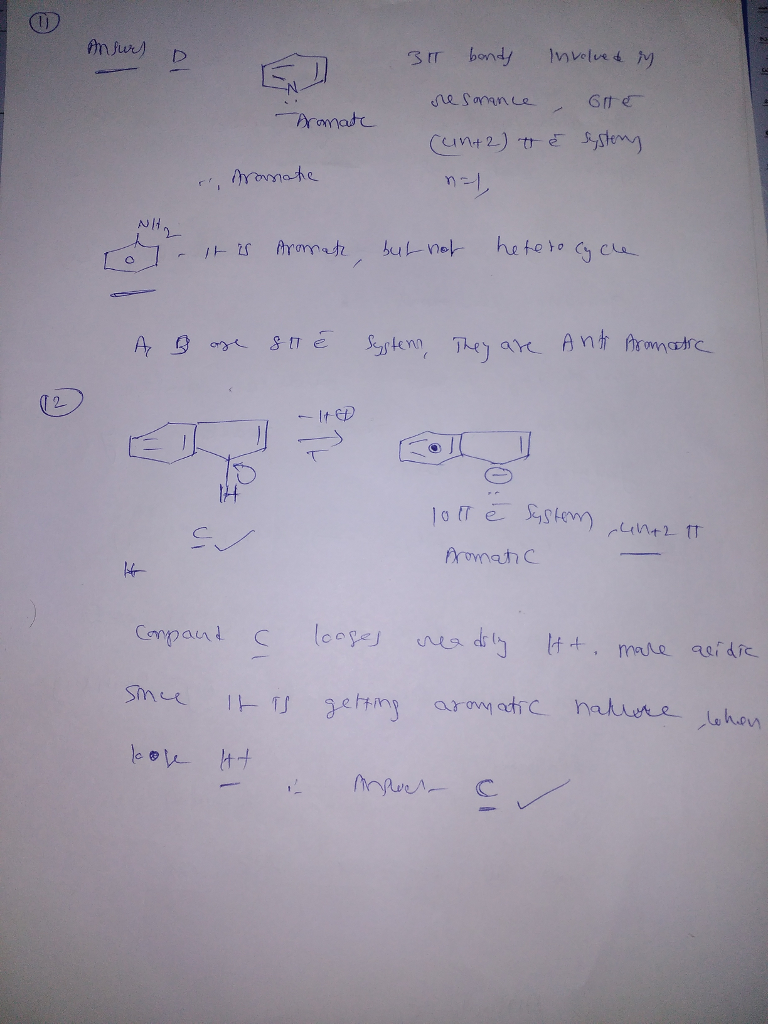 11
Answer D
N
3π bonds Involved in
resonance, 6π ē
Aromatic
(4n+2) π ē system
∴, Aromatic n=1,
NH2
- It is Aromatic, but not heterocycle
A, B are 8π ē System, They are Anti Aromatic
12
-H⊕
⇌
H
⊖
10π ē System, 4n+2 π
C ✓
Aromatic
H
Compaund C looges readily H+. more acidic
Since It is getting aromatic nature, when
loose H+
∴ Answer - C ✓